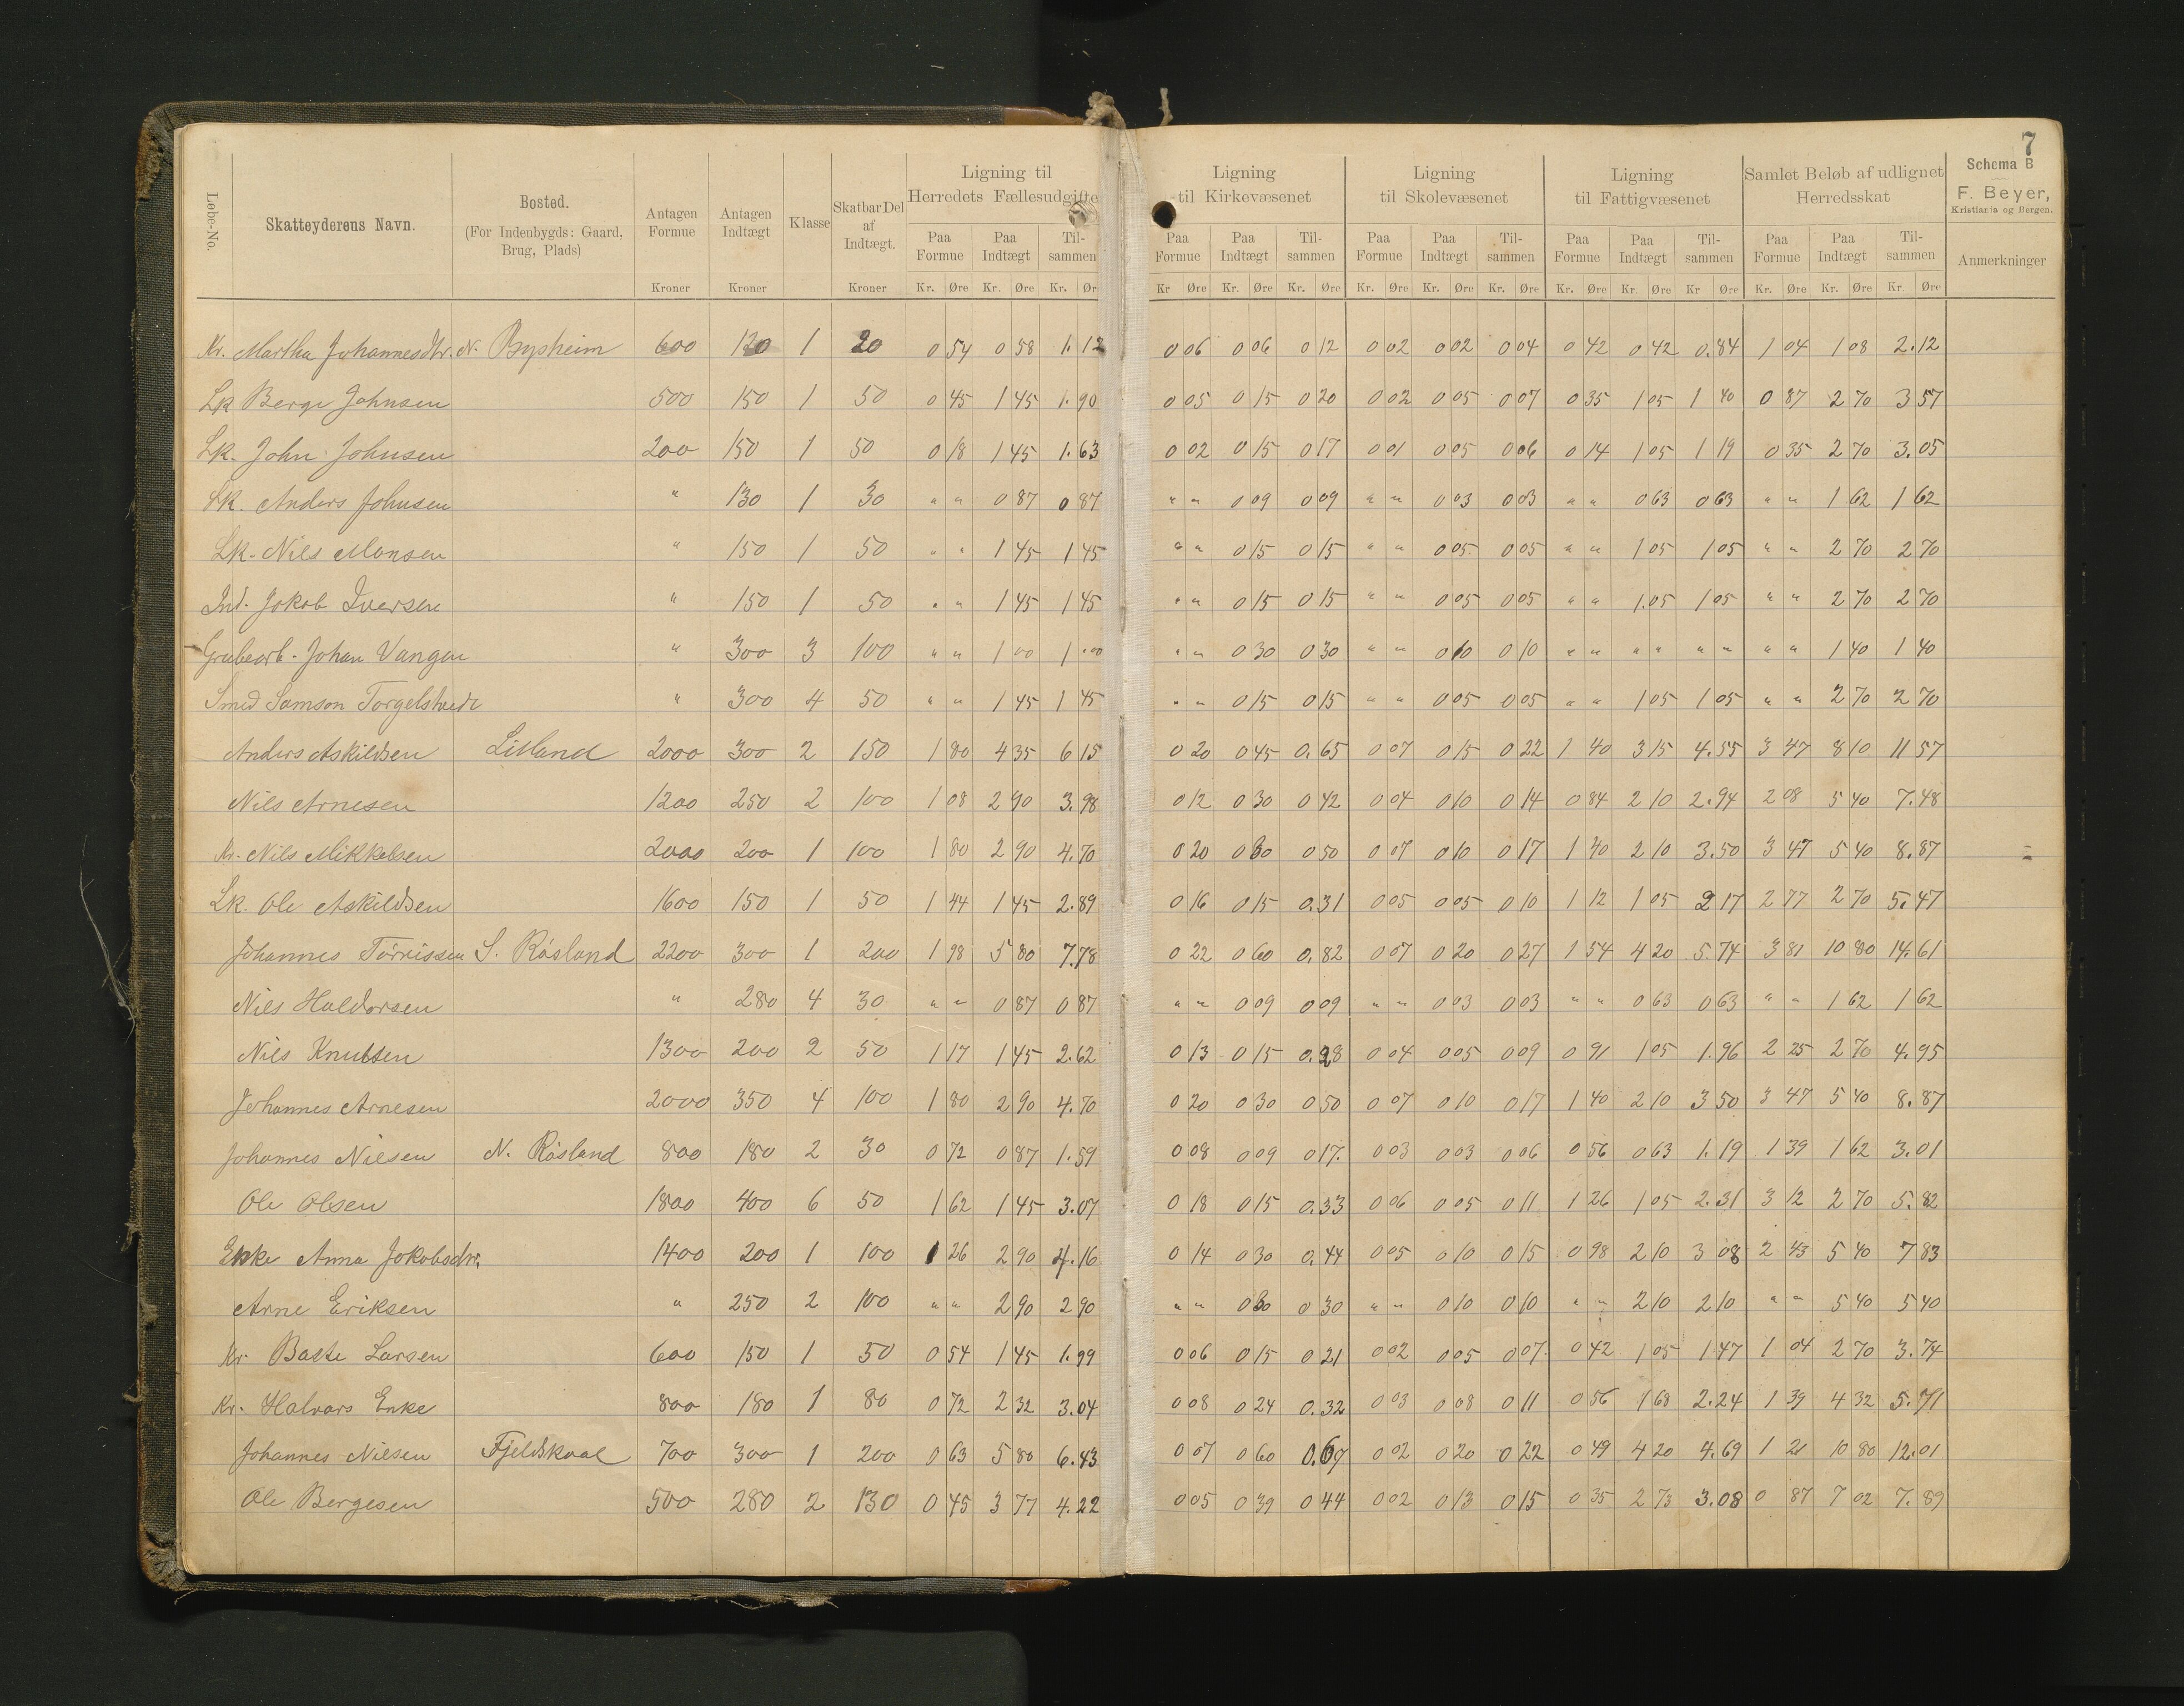 7
Schema B
F. Beyer,
Kristiania og Bergen.
Løbe-No. Skatteyderens Navn. Bosted. (For Indenbygds: Gaard, Brug, Plads) Antagen Formue Kroner Antagen Indtægt Kroner Klasse Skatbar Del af Indtægt. Kroner Ligning til Herredets Fællesudgifte Ligning til Kirkevæsenet Ligning til Skolevæsenet Ligning til Fattigvæsenet Samlet Beløb af udlignet Herredsskat Anmerkninger
Paa Formue Paa Indtægt Til-sammen Paa Formue Paa Indtægt Til-sammen Paa Formue Paa Indtægt Til-sammen Paa Formue Paa Indtægt Til-sammen Paa Formue Paa Indtægt Til-sammen
Kr. Øre Kr. Øre Kr. Ør Kr Øre Kr. Øre Kr. Øre Kr. Øre Kr. Øre Kr. Øre Kr. Øre Kr. Øre Kr Øre Kr. Øre Kr. Øre Kr. Øre
Kr. Martha Johannesdtr. N. Bysheim 600 120 1 20 0 54 0 58 1.12 0 06 0 06 0 12 0 02 0 02 0 04 0 42 0 42 0.84 1 04 1 08 2.12
Lk Berge Johnsen 500 150 1 50 0 45 1 45 1.90 0 05 0 15 0 20 0 02 0 05 0 07 0 35 1 05 1 40 0 87 2 70 3 57
Lk. John Johnsen 200 150 1 50 0 18 1 45 1.63 0 02 0 15 0 17 0 01 0 05 0 06 0 14 1 05 1 19 0 35 2 70 3.05
Lk. Anders Johnsen " 130 1 30 " " 0 87 0 87 " " 0 09 0 09 " " 0 03 0 03 " " 0 63 0 63 " " 1 62 1 62
Lk. Nils Monsen " 150 1 50 " " 1 45 1 45 " " 0 15 0 15 " " 0 05 0 05 " " 1 05 1 05 " " 2 70 2 70
Ind. Jakob Iversen " 150 1 50 " " 1 45 1 45 " " 0 15 0 15 " " 0 05 0 05 " " 1.05 1 05 " " 2 70 2 70
Grubearb. Johan Vangen " 300 3 100 " " 1 00 1.00 " " 0 30 0 30 " " 0 10 0 10 " " " " " " " " 1 40 1 40
Smed Samson Torgelstvedt " 300 4 50 " " 1 45 1 45 " " 0 15 0 15 " " 0 05 0 05 " " 1 05 1 05 " " 2 70 2 70
Anders Askildsen Lilland 2000 300 2 150 1 80 4 35 6 15 0 20 0 45 0.65 0 07 0 15 0 22 1 40 3 15 4.55 3 47 8 10 11 57
Nils Arnesen 1200 250 2 100 1 08 2 90 3.98 0 12 0 30 0 42 0 04 0 10 0 14 0 84 2 10 2.94 2 08 5 40 7.48
Kr. Nils Mikkelsen 2000 200 1 100 1 80 2 90 4.70 0 20 0 30 0 50 0 07 0 10 0 17 1 40 2 10 3.50 3 47 5 40 8.87
Lk. Ole Askildsen 1600 150 1 50 1 44 1 45 2.89 0 16 0 15 0.31 0 05 0 05 0 10 1 12 1 05 2 17 2 77 2 70 5.47
Johannes Tørrissen S. Røsland 2200 300 1 200 1 98 5 80 7.78 0 22 0 60 0.82 0 07 0 20 0 27 1 54 4 20 5.74 3 81 10 80 14.61
Nils Haldorsen " 280 4 30 " " 0 87 0 87 " " 0 09 0 09 " " 0 03 0 03 " " 0 63 0 63 " " 1 62 1 62
Nils Knutsen 1300 200 2 50 1 17 1 45 2.62 0 13 0 15 0.28 0 04 0 05 0 09 0 91 1 05 1.96 2 25 2 70 4.95
Johannes Arnesen 2000 350 4 100 1 80 2 90 4.70 0 20 0 30 0 50 0 07 0 10 0 17 1 40 2 10 3 50 3 47 5 40 8.87
Johannes Nilsen N. Røsland 800 180 2 30 0 72 0 87 1.59 0 08 0 09 0 17. 0 03 0 03 0 06 0 56 0 63 1.19 1 39 1 62 3.01
Ole Olsen 1800 400 6 50 1 62 1 45 3.07 0 18 0 15 0.33 0 06 0 05 0 11 1 26 1 05 2.31 3 12 2 70 5.82
Enke Anna Jakobsdtr. 1400 200 1 100 1 26 2 90 4.16 0 14 0 30 0.44 0 05 0 10 0 15 0 98 2 10 3 08 2 43 5 40 7 83
Arne Eriksen " 250 2 100 " " 2 90 2 90 " " 0 30 0 30 " " 0 10 0 10 " " 2 10 2 10 " " 5 40 5 40
Kr. Baste Larsen 600 150 1 50 0 54 1 45 1.99 0 06 0 15 0 21 0 02 0 05 0 07. 0 42 1 05 1 47 1 04 2 70 3.74
Kr. Halvars Enke 800 180 1 80 0 72 2 32 3.04 0 08 0 24 0.32 0 03 0 08 0 11 0 56 1 68 2.24 1 39 4 32 5.71
Johannes Nilsen Fjeldskaal 700 300 1 200 0 63 5 80 6.43 0 07 0 60 0.67 0 02 0 20 0 22 0 49 4 20 4.69 1 21 10 80 12.01
Ole Bergesen 500 280 2 130 0 45 3 77 4.22 0 05 0 39 0 44 0 02 0 13 0 15 0 35 2 73 3.08 0 87 7 02 7.89